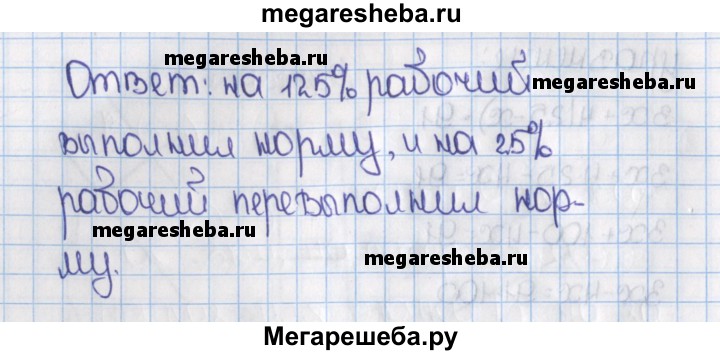 megaresheba.ru
megaresheba.ru
Ответ: на 125% рабочий
megaresheba.ru
выполнил норму, и на 25%
рабочий перевыполнил нор-
megaresheba.ru
му.
megaresheba.ru
Мегарешеба.ру